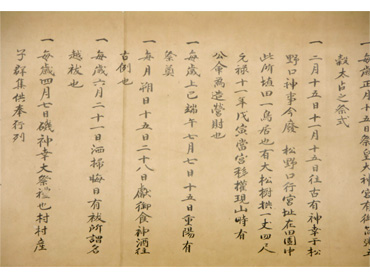 一 每歲正月十五日祭皇大神宮有御占粥
穀太占之祭式
一 二月十五日十一月十五日往古有神幸于松
野口神事今廢 松野口行宮址在田園中
此所埴田一鳥居也有大松樹拱一丈四人
元祿十一年戊寅當宮移權現山時有
公命為造營財也
一 每歲上巳端午七月七日十五日重陽有
祭奠
一 每月朔日十五日二十八日獻御食神酒往
古例也
一 每歲六月二十一日洒掃晦日有祓所謂名
越祓也
一 每歲四月七日磯神幸大祭禮也村村產
子群集供奉行列